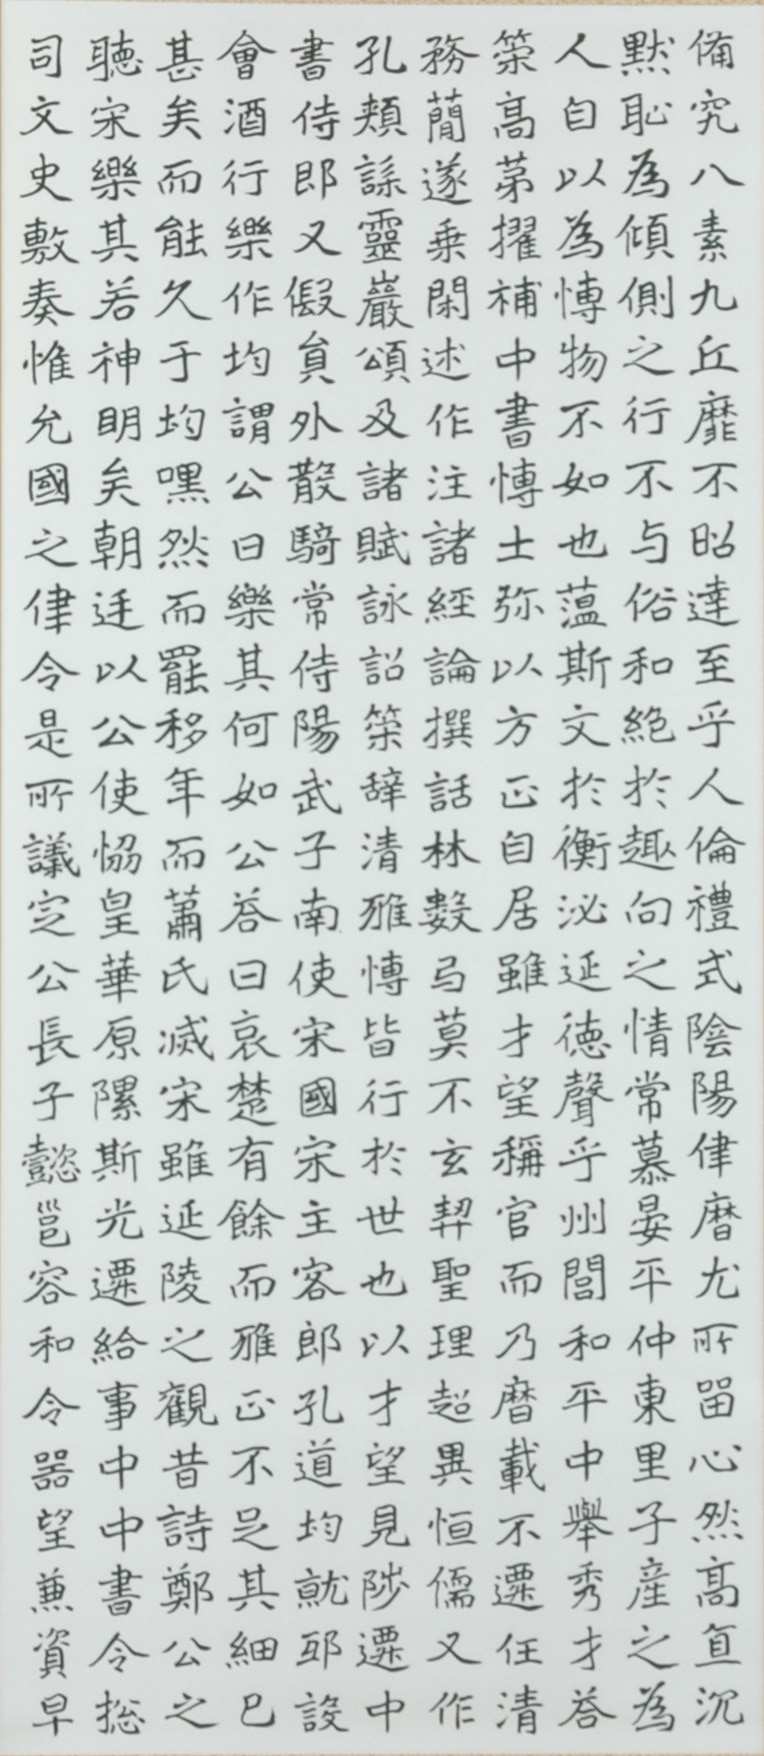 備究八素九丘靡不昭達至乎人倫禮式陰陽律曆尤所留心然高直沉
默恥為傾側之行不与俗和絶於趣向之情常慕晏平仲東里子產之為
人自以為博物不如也蘊斯文於衡泌延德聲乎州閭和平中舉秀才荅
策高第擢補中書博士弥以方正自居雖才望稱官而乃曆載不遷任清
務簡遂乗閑述作注諸經論撰話林數弓莫不玄契聖理超異恒儒又作
孔頰謡靈巖頌及諸賦詠詔策辝清雅博皆行於世也以才望見陟遷中
書侍郎又假貟外散騎常侍陽武子南使宋國宋主客郎孔道均就邳設
會酒行樂作均謂公曰樂其何如公荅曰哀楚有餘而雅正不足其細已
甚矣而能久于均嘿然而罷移年而蕭氏滅宋雖延陵之觀昔詩鄭公之
聽宋樂其若神明矣朝迋以公使恊皇華原隰斯光遷給事中中書令捴
司文史敷奏惟允國之律令是所議定公長子懿邕容和令器望蒹資早